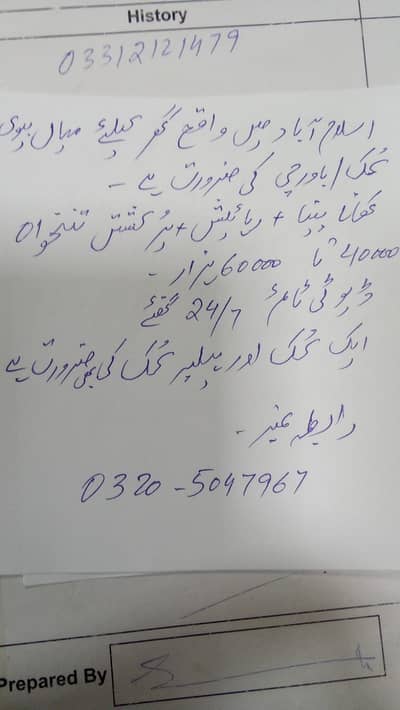 History
03312121479
اسلام آباد میں واقع گھر کیلئے میاں بیوی
کُک/باورچی کی ضرورت ہے -
کھانا پینا + رہائش + پُر کشش تنخواہ
40000 تا 60000 ہزار -
ڈیوٹی ٹائم 24/7 گھنٹے
ایک کُک اور ہیلپر کُک کی بھی ضرورت ہے
رابطہ نمبر -
0320-5047967
Prepared By